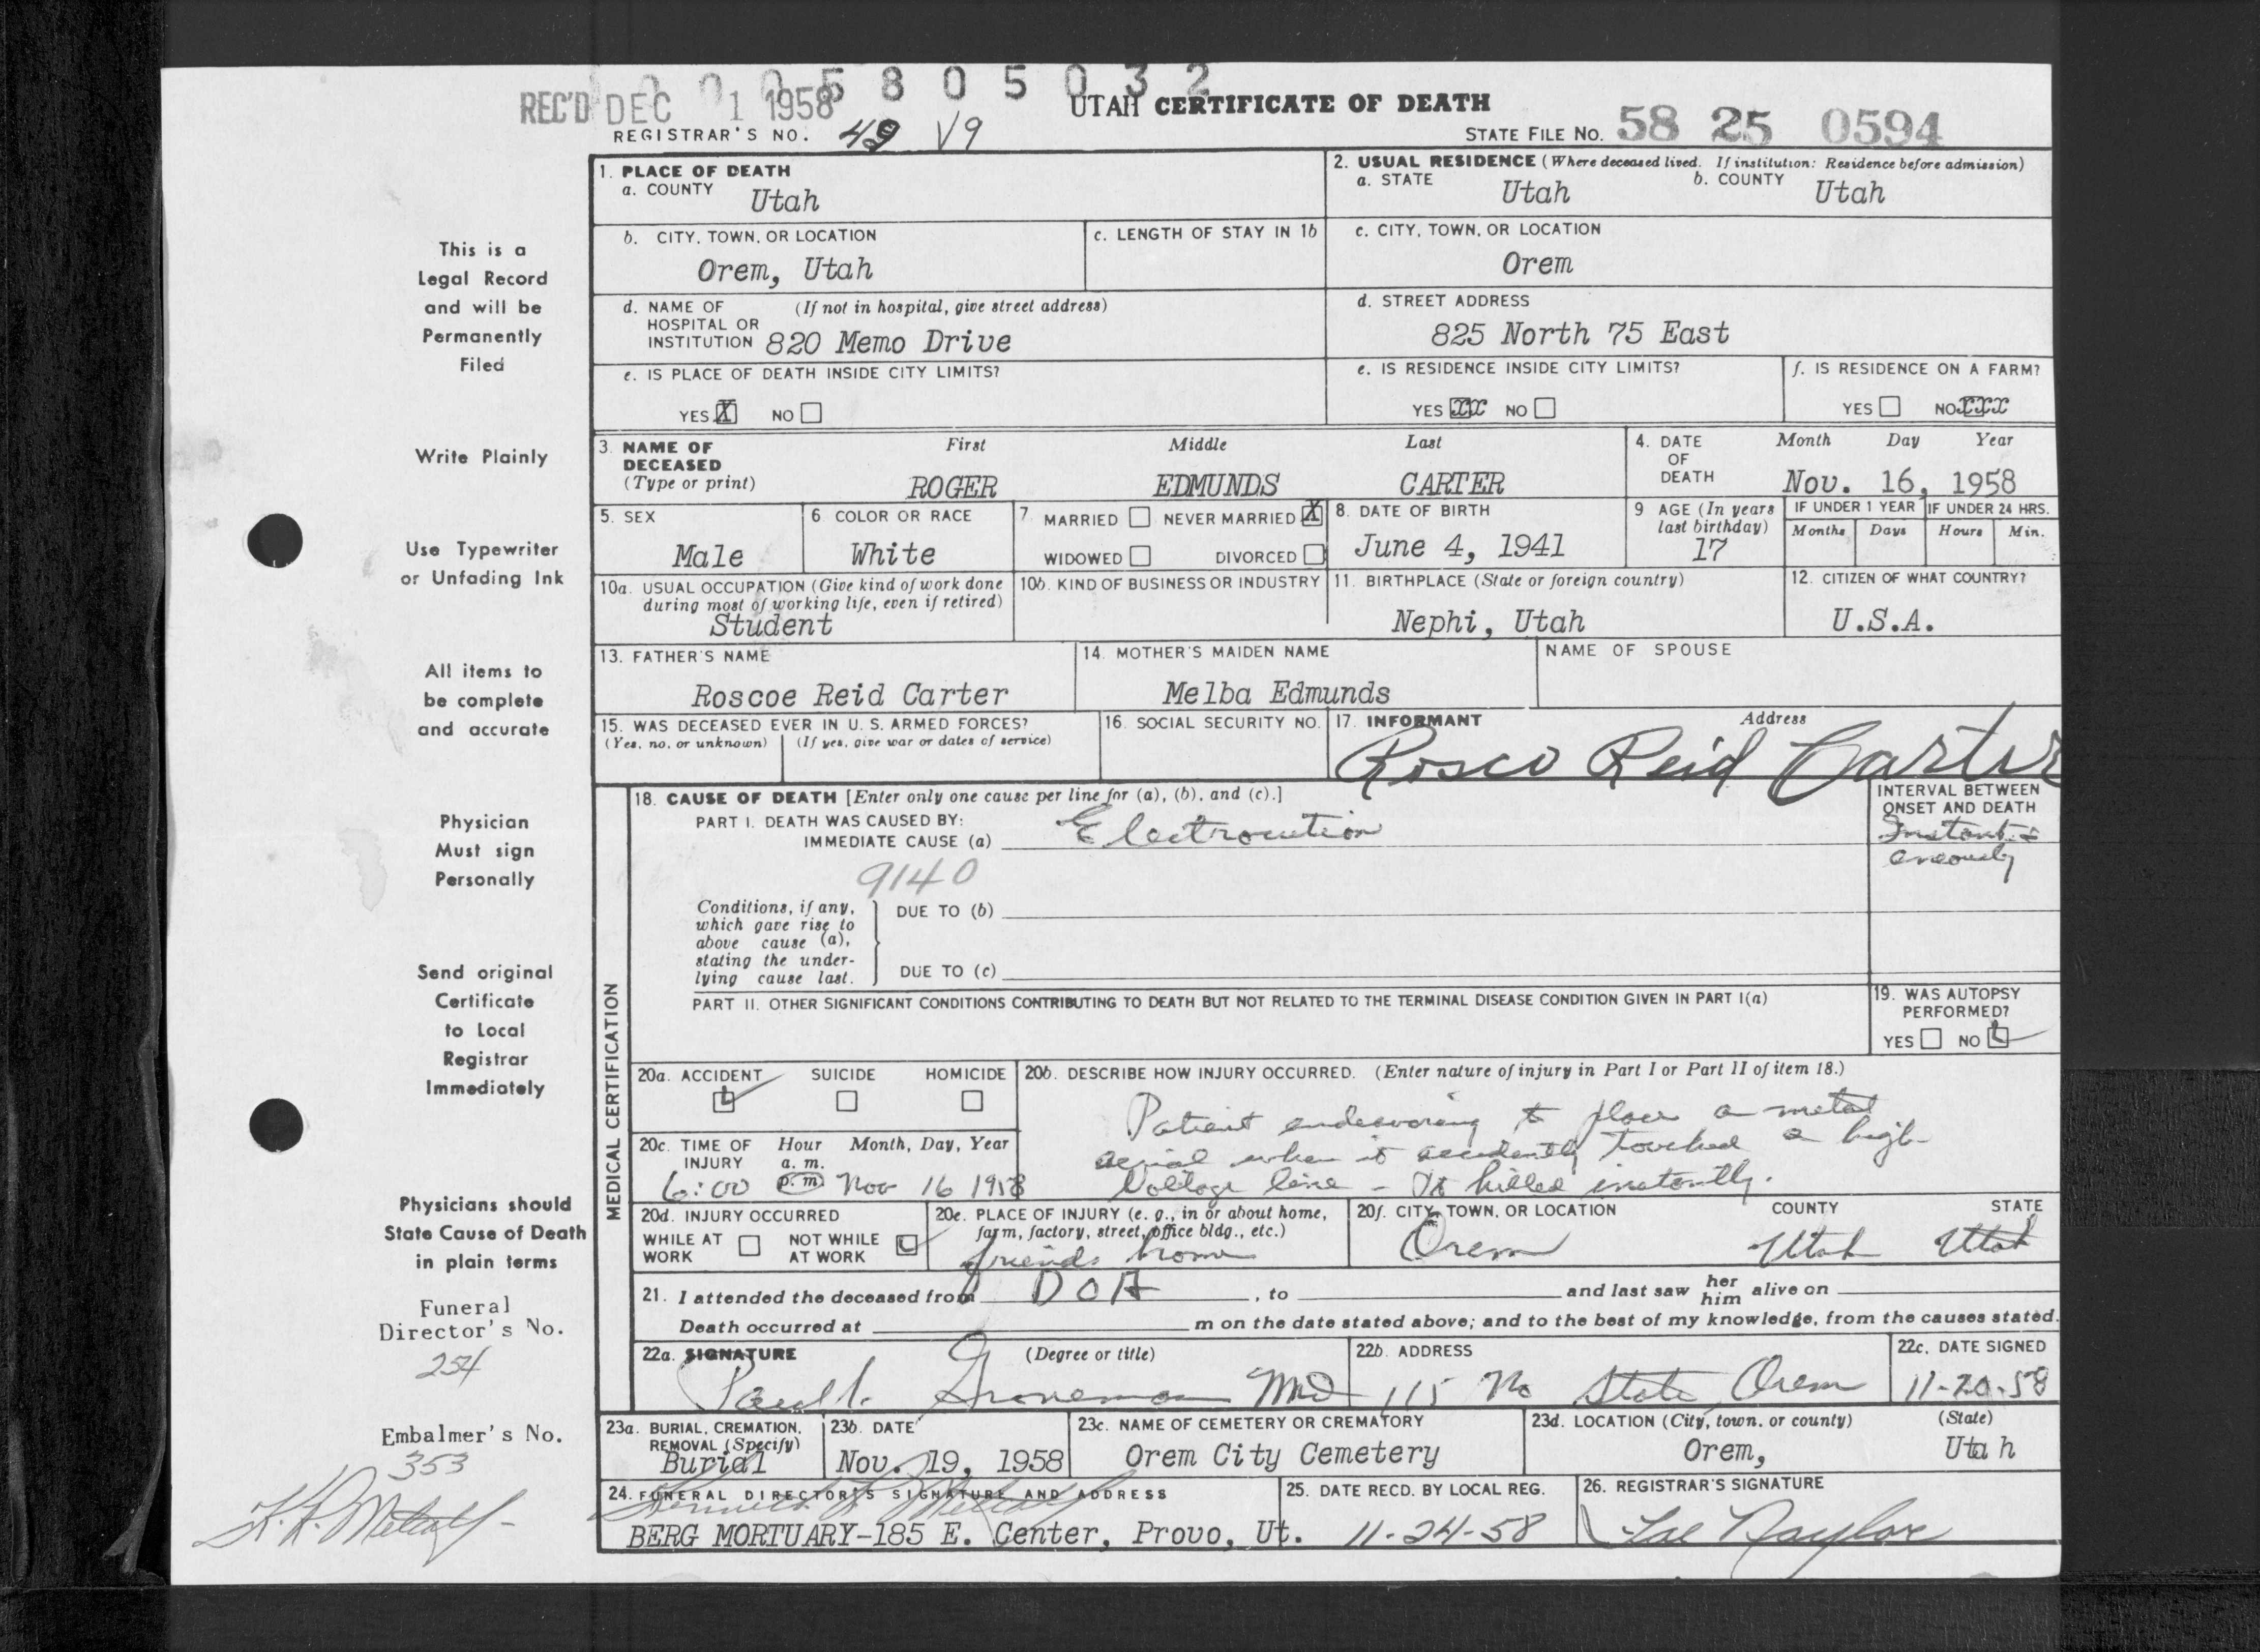 0 0 0 5 8 0 5 0 3 2
REC'D DEC 01 1958
UTAH CERTIFICATE OF DEATH
REGISTRAR'S NO. 49 V9
STATE FILE NO. 58 25 0594
This is a
Legal Record
and will be
Permanently
Filed
Write Plainly
Use Typewriter
or Unfading Ink
All items to
be complete
and accurate
Physician
Must sign
Personally
Send original
Certificate
to Local
Registrar
Immediately
Physicians should
State Cause of Death
in plain terms
Funeral
Director's No.
254
Embalmer's No.
353
K. R. Metcalf
1. PLACE OF DEATH
a. COUNTY Utah
2. USUAL RESIDENCE (Where deceased lived. If institution: Residence before admission)
a. STATE Utah b. COUNTY Utah
b. CITY, TOWN, OR LOCATION
Orem, Utah
c. LENGTH OF STAY IN 1b
c. CITY, TOWN, OR LOCATION
Orem
d. NAME OF (If not in hospital, give street address)
HOSPITAL OR
INSTITUTION 820 Memo Drive
d. STREET ADDRESS
825 North 75 East
e. IS PLACE OF DEATH INSIDE CITY LIMITS?
YES X NO
e. IS RESIDENCE INSIDE CITY LIMITS?
YES xx NO
f. IS RESIDENCE ON A FARM?
YES NO xxx
3. NAME OF First Middle Last
DECEASED
(Type or print) ROGER EDMUNDS CARTER
4. DATE Month Day Year
OF
DEATH Nov. 16, 1958
5. SEX
Male
6 COLOR OR RACE
White
7 MARRIED NEVER MARRIED X
WIDOWED DIVORCED
8. DATE OF BIRTH
June 4, 1941
9 AGE (In years
last birthday)
17
IF UNDER 1 YEAR
Months Days
IF UNDER 24 HRS.
Hours Min.
10a. USUAL OCCUPATION (Give kind of work done
during most of working life, even if retired)
Student
10b. KIND OF BUSINESS OR INDUSTRY
11. BIRTHPLACE (State or foreign country)
Nephi, Utah
12. CITIZEN OF WHAT COUNTRY?
U.S.A.
13. FATHER'S NAME
Roscoe Reid Carter
14. MOTHER'S MAIDEN NAME
Melba Edmunds
NAME OF SPOUSE
15. WAS DECEASED EVER IN U. S. ARMED FORCES?
(Yes, no, or unknown) (If yes, give war or dates of service)
16. SOCIAL SECURITY NO.
17. INFORMANT Address
Rosco Reid Carter
MEDICAL CERTIFICATION
18. CAUSE OF DEATH [Enter only one cause per line for (a), (b), and (c).]
PART I. DEATH WAS CAUSED BY:
IMMEDIATE CAUSE (a) Electrocution
9140
INTERVAL BETWEEN
ONSET AND DEATH
Instant-
aneously
Conditions, if any,
which gave rise to
above cause (a),
stating the under-
lying cause last.
DUE TO (b)
DUE TO (c)
PART II. OTHER SIGNIFICANT CONDITIONS CONTRIBUTING TO DEATH BUT NOT RELATED TO THE TERMINAL DISEASE CONDITION GIVEN IN PART I(a)
19. WAS AUTOPSY
PERFORMED?
YES NO
20a. ACCIDENT SUICIDE HOMICIDE
20b. DESCRIBE HOW INJURY OCCURRED. (Enter nature of injury in Part I or Part II of item 18.)
Patient endeavoring to place a metal
aerial when it accidently touched a high
Voltage line - It killed instantly.
20c. TIME OF Hour Month, Day, Year
INJURY a. m.
6:00 p. m. Nov 16 1958
20d. INJURY OCCURRED
WHILE AT NOT WHILE
WORK AT WORK
20e. PLACE OF INJURY (e. g., in or about home,
farm, factory, street, office bldg., etc.)
friends home
20f. CITY, TOWN, OR LOCATION COUNTY STATE
Orem Utah Utah
21. I attended the deceased from DOA, to and last saw her him alive on
Death occurred at m on the date stated above; and to the best of my knowledge, from the causes stated.
22a. SIGNATURE (Degree or title)
Paul MD
22b. ADDRESS
115 No State Orem
22c. DATE SIGNED
11-20-58
23a. BURIAL, CREMATION,
REMOVAL (Specify)
Burial
23b. DATE
Nov. 19, 1958
23c. NAME OF CEMETERY OR CREMATORY
Orem City Cemetery
23d. LOCATION (City, town, or county) (State)
Orem, Utah
24. FUNERAL DIRECTOR'S SIGNATURE AND ADDRESS
BERG MORTUARY-185 E. Center, Provo, Ut.
25. DATE RECD. BY LOCAL REG.
11-24-58
26. REGISTRAR'S SIGNATURE
Naylor